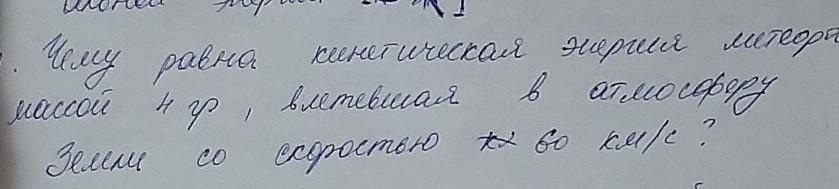 . Чему равна кинетическая энергия метеора
массой 4 гр, влетевшая в атмосферу
Земли со скоростью 60 км/с?